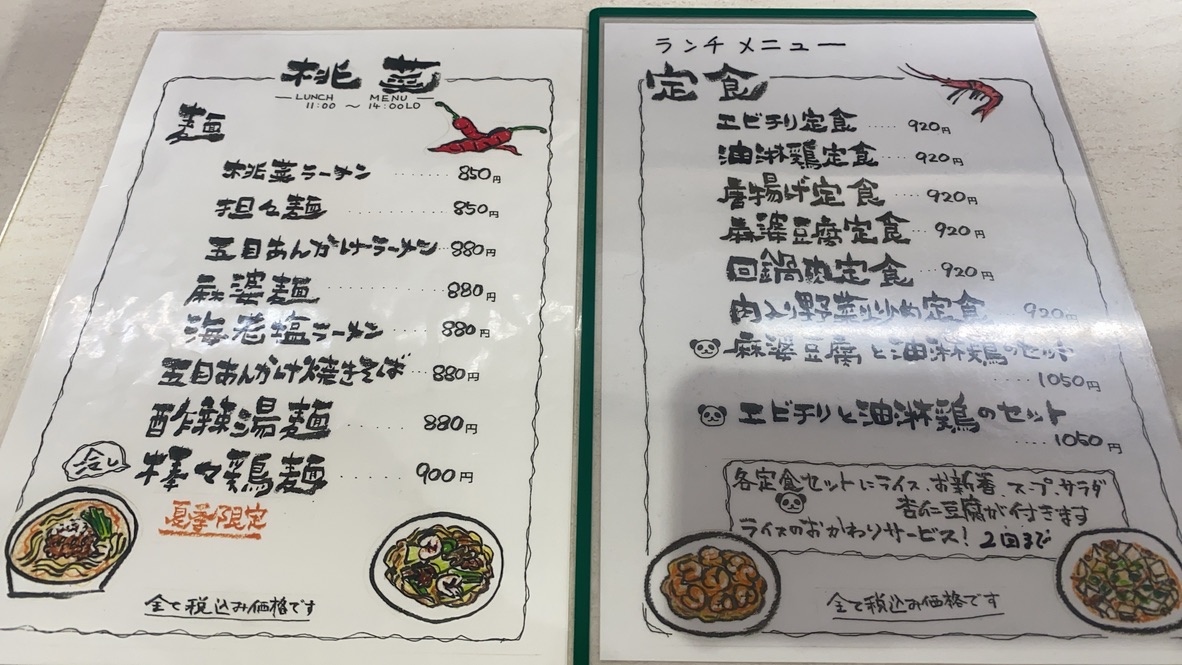 桃菜
LUNCH MENU
11:00 ~ 14:00LO
麺
桃菜ラーメン ..... 850円
担々麺 ..... 850円
五目あんかけラーメン ... 880円
麻婆麺 ..... 880円
海老塩ラーメン ..... 880円
五目あんかけ焼きそば ... 880円
酢辣湯麺 ..... 880円
冷し 棒々鶏麺 ..... 900円
夏季限定
全て税込み価格です
ランチメニュー
定食
エビチリ定食 ..... 920円
油淋鶏定食 ... 920円
唐揚げ定食 ..... 920円
麻婆豆腐定食 ... 920円
回鍋肉定食 ... 920円
肉入り野菜炒め定食 ... 920円
麻婆豆腐と油淋鶏のセット
..... 1050円
エビチリと油淋鶏のセット
..... 1050円
各定食セットにライス、お新香、スープ、サラダ
杏仁豆腐が付きます
ライスのおかわりサービス! 2回まで
全て税込み価格です